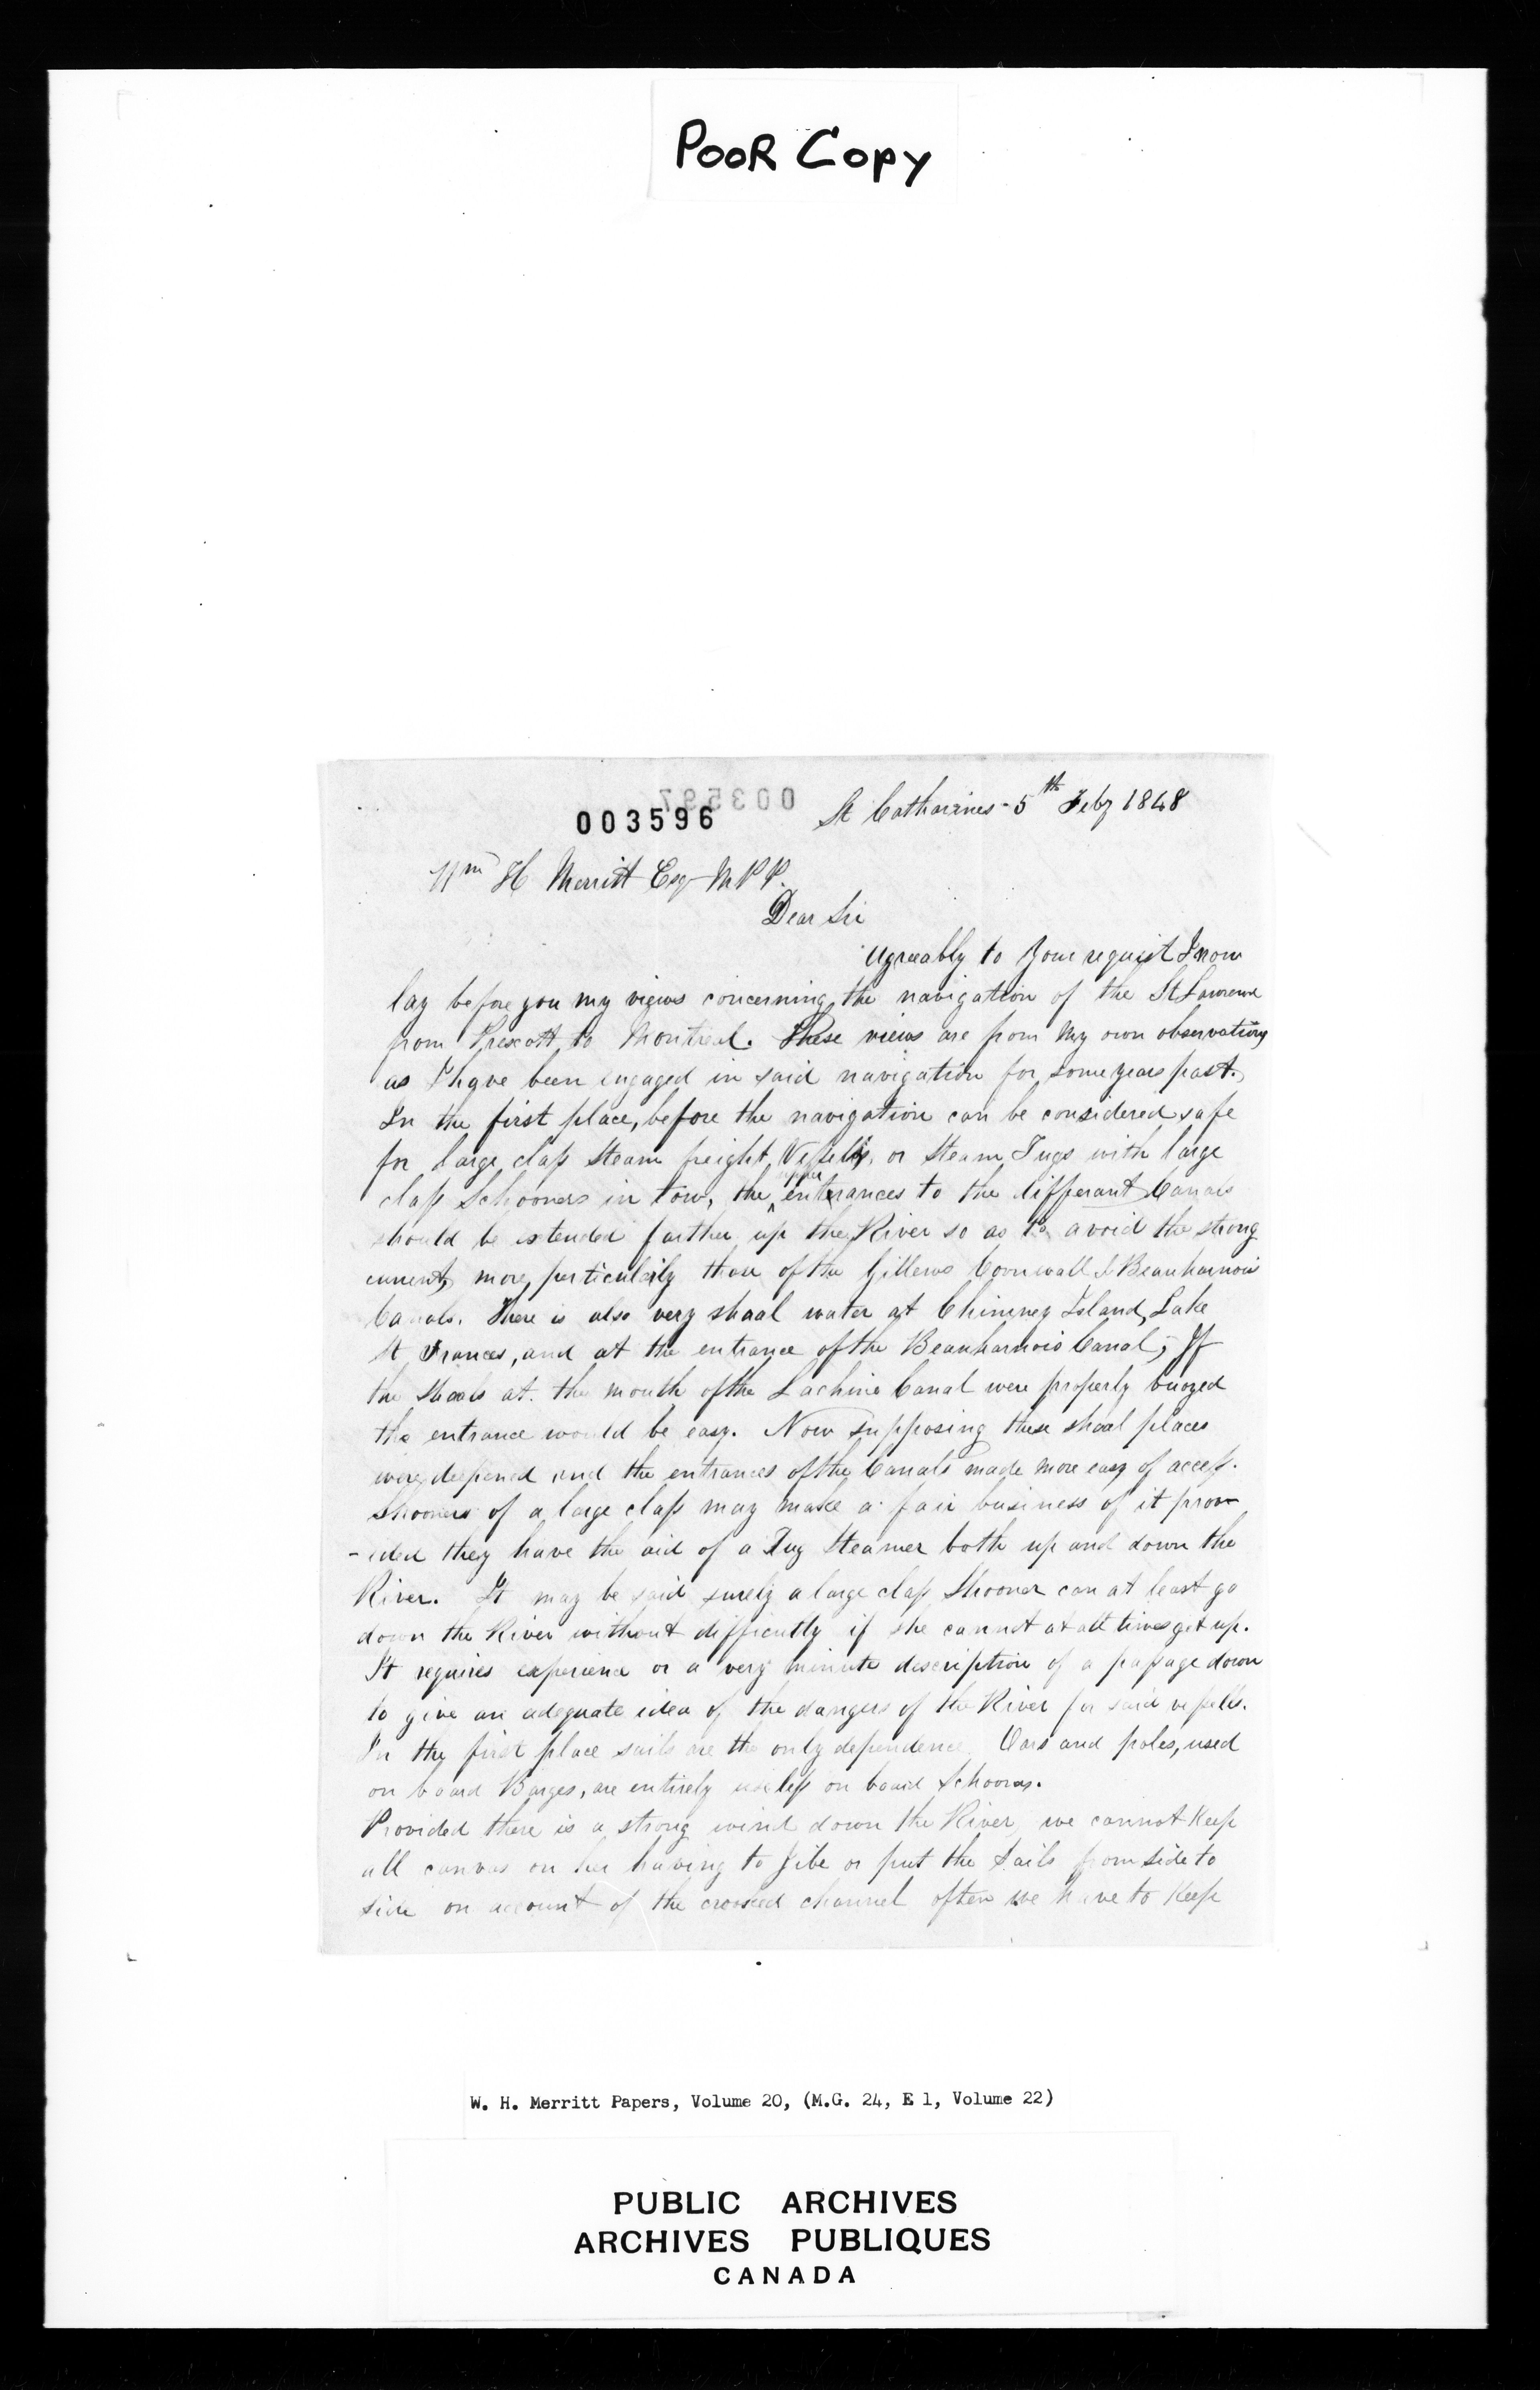 Poor Copy
003597
003596
St Catharines - 5th Feby 1848
Wm H Merritt Esq M P P.
Dear Sir
Agreeably to Your request I now
lay before you my views concerning the navigation of the St Lawrence
from Prescott to Montreal. These views are from my own observations
as I have been engaged in said navigation for some years past.
In the first place, before the navigation can be considered safe
for large class Steam freight Vessells, or Steam Tugs with large
class Schooners in tow, the upper entrances to the differant Canals
should be extended farther up the River so as to avoid the strong
current, more particularly those of the Gillows Cornwall & Beauharnois
Canals. There is also very shoal water at Chimney Island, Lake
St Frances, and at the entrance of the Beauharnois Canal; If
the Shoals at the mouth of the Lachine Canal were properly buoyed
the entrance would be easy. Now supposing these shoal places
were deepened and the entrances of the Canals made more easy of access.
Shooners of a large class may make a fair business of it prov-
-ided they have the aid of a Tug Steamer both up and down the
River. It may be said surely a large class Shooner can at least go
down the River without difficulty if she cannot at all times get up.
It requires experience or a very minute description of a passage down
to give an adequate idea of the dangers of the River for said vessells.
In the first place sails are the only dependence Oars and poles, used
on board Barges, are entirely useless on board Schooners.
Provided there is a strong wind down the River, we cannot Keep
all canvas on her having to Jibe or put the Sails from side to
side on account of the crooked channel often we have to Keep
W. H. Merritt Papers, Volume 20, (M.G. 24, E 1, Volume 22)
PUBLIC ARCHIVES
ARCHIVES PUBLIQUES
CANADA